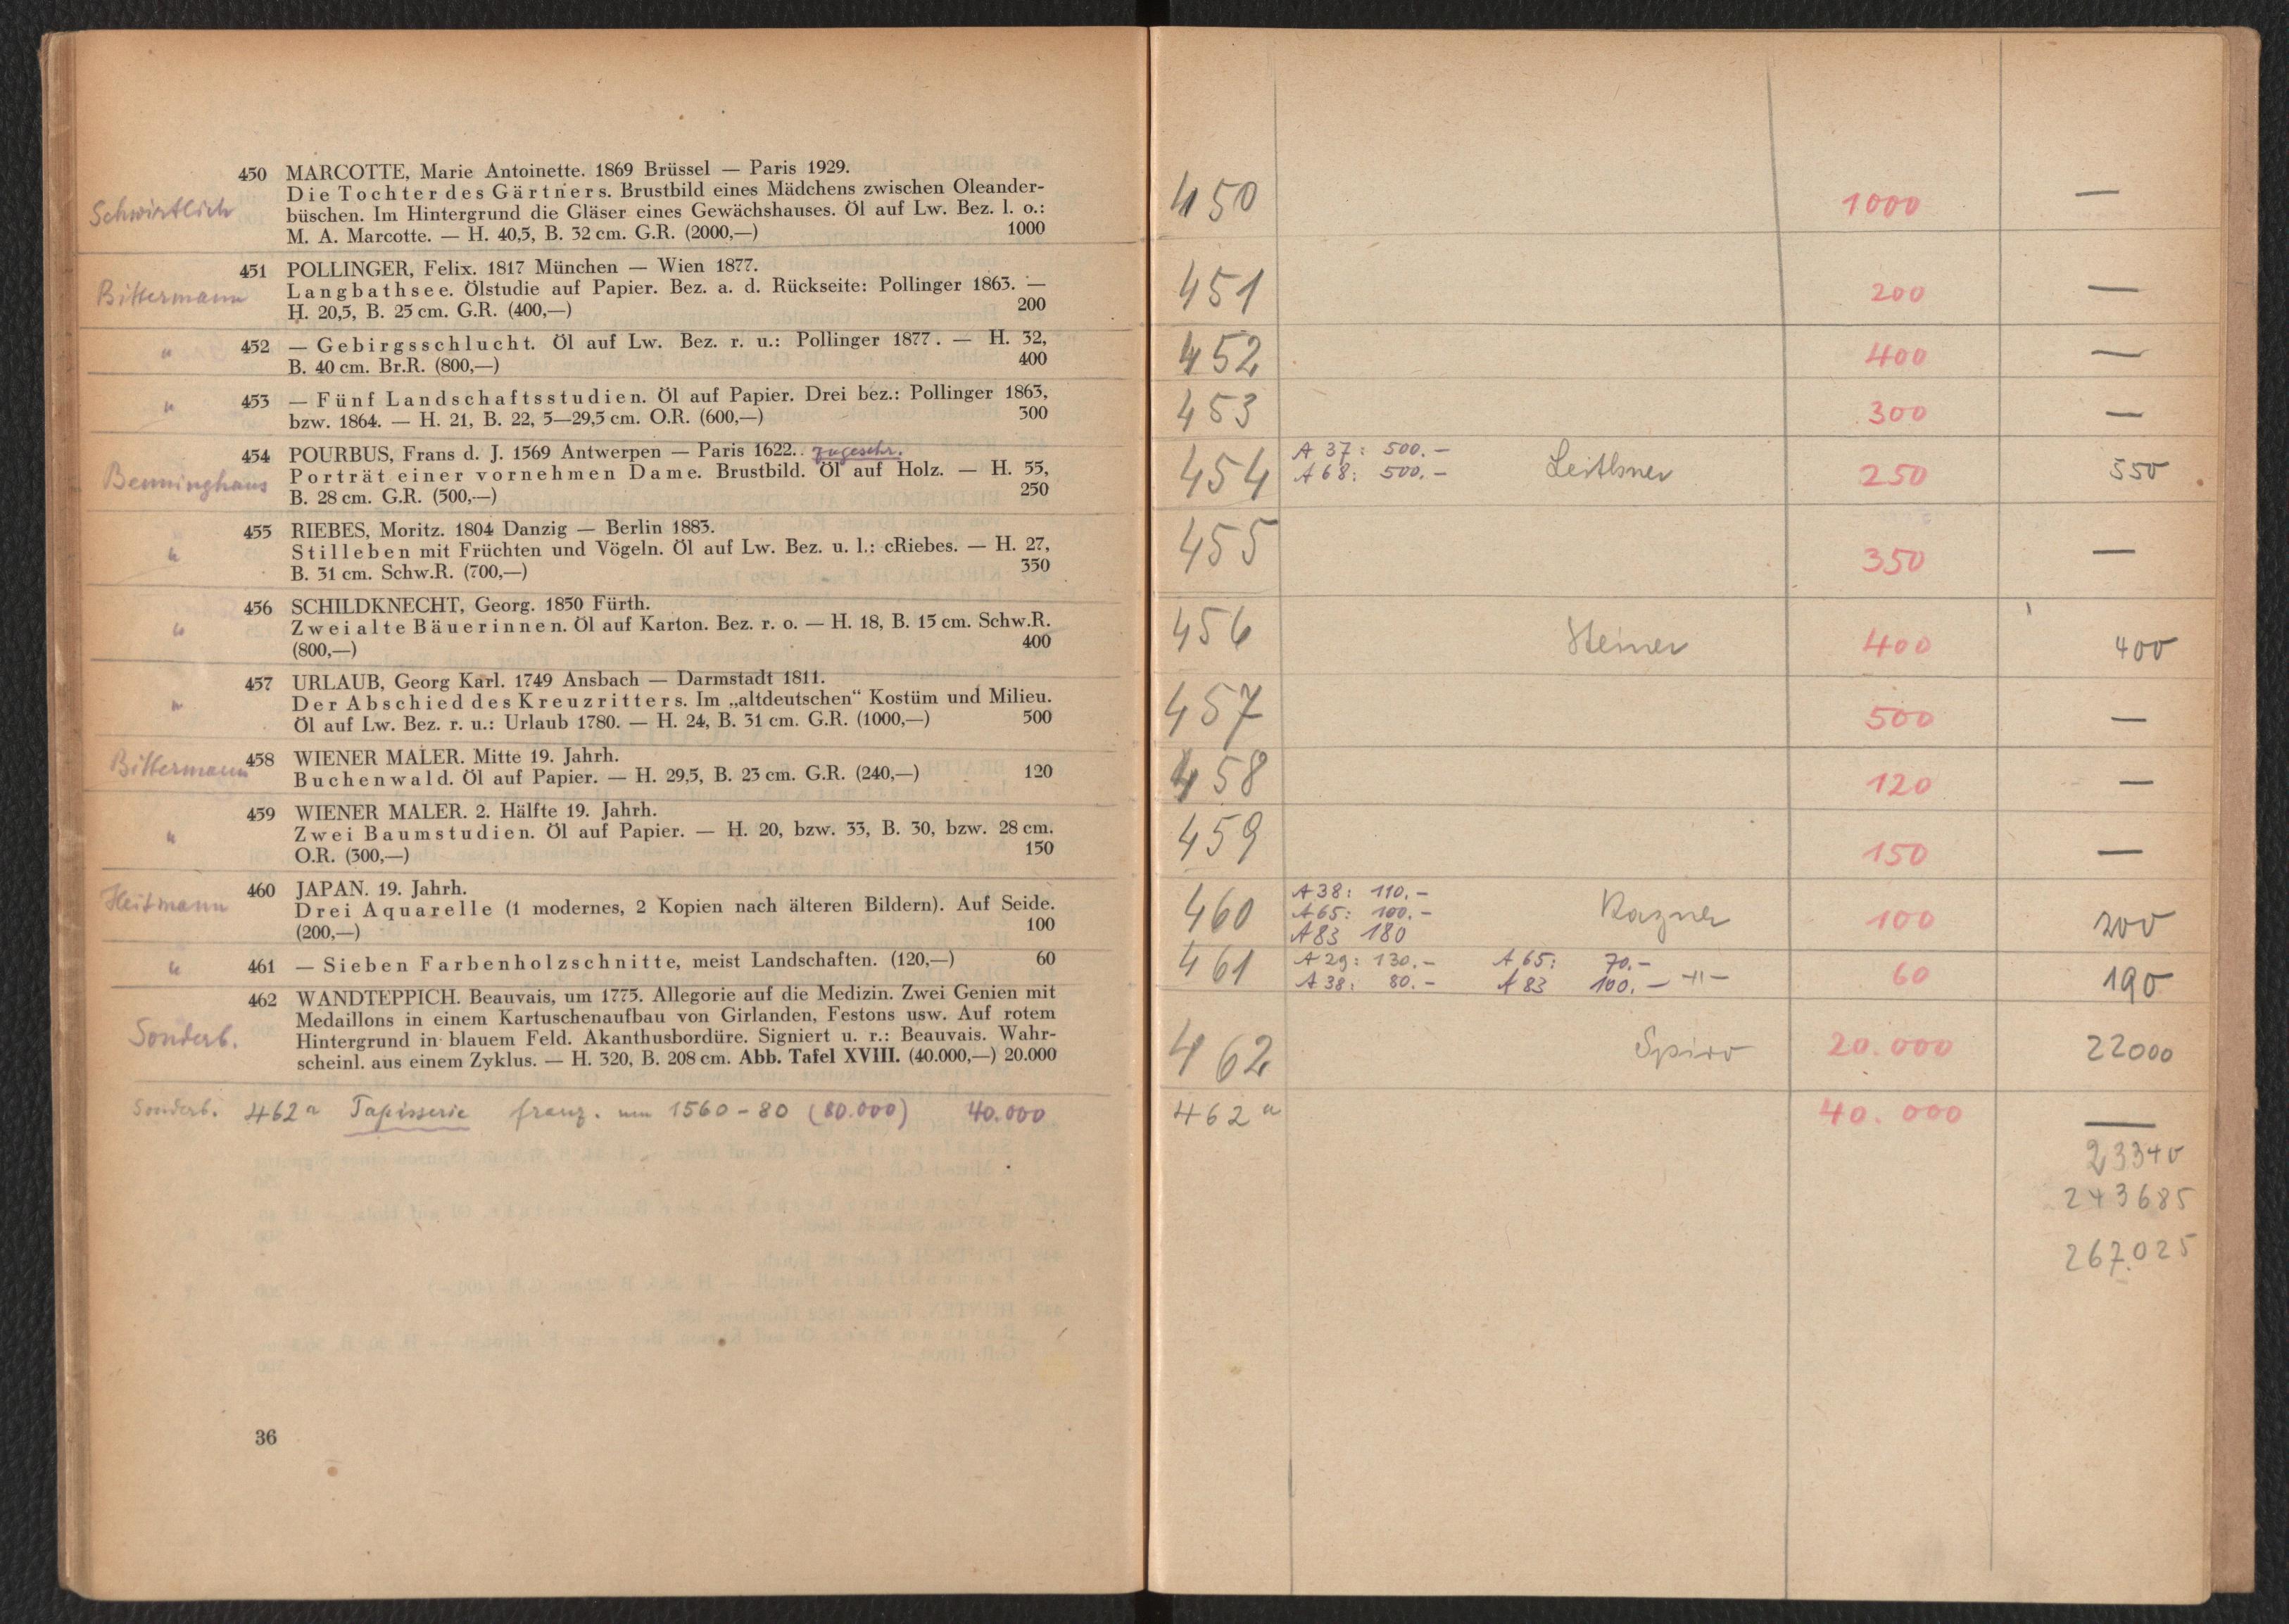 450 MARCOTTE, Marie Antoinette. 1869 Brüssel — Paris 1929.
Schwirtlich
Die Tochter des Gärtners. Brustbild eines Mädchens zwischen Oleander-
büschen. Im Hintergrund die Gläser eines Gewächshauses. Öl auf Lw. Bez. l. o.:
M. A. Marcotte. — H. 40,5, B. 32 cm. G.R. (2000,—) 1000
451 POLLINGER, Felix. 1817 München — Wien 1877.
Bittermann
Langbathsee. Ölstudie auf Papier. Bez. a. d. Rückseite: Pollinger 1863. —
H. 20,5, B. 25 cm. G.R. (400,—) 200
" 452 — Gebirgsschlucht. Öl auf Lw. Bez. r. u.: Pollinger 1877. — H. 32,
B. 40 cm. Br.R. (800,—) 400
" 453 — Fünf Landschaftsstudien. Öl auf Papier. Drei bez.: Pollinger 1863,
bzw. 1864. — H. 21, B. 22, 5—29,5 cm. O.R. (600,—) 300
454 POURBUS, Frans d. J. 1569 Antwerpen — Paris 1622.. zugeschr.
Benninghaus
Porträt einer vornehmen Dame. Brustbild. Öl auf Holz. — H. 35,
B. 28 cm. G.R. (500,—) 250
455 RIEBES, Moritz. 1804 Danzig — Berlin 1883.
" Stilleben mit Früchten und Vögeln. Öl auf Lw. Bez. u. l.: cRiebes. — H. 27,
B. 31 cm. Schw.R. (700,—) 350
456 SCHILDKNECHT, Georg. 1850 Fürth.
" Zwei alte Bäuerinnen. Öl auf Karton. Bez. r. o. — H. 18, B. 15 cm. Schw.R.
(800,—) 400
457 URLAUB, Georg Karl. 1749 Ansbach — Darmstadt 1811.
" Der Abschied des Kreuzritters. Im „altdeutschen“ Kostüm und Milieu.
Öl auf Lw. Bez. r. u.: Urlaub 1780. — H. 24, B. 31 cm. G.R. (1000,—) 500
Bittermann 458 WIENER MALER. Mitte 19. Jahrh.
Buchenwald. Öl auf Papier. — H. 29,5, B. 23 cm. G.R. (240,—) 120
459 WIENER MALER. 2. Hälfte 19. Jahrh.
" Zwei Baumstudien. Öl auf Papier. — H. 20, bzw. 33, B. 30, bzw. 28 cm.
O.R. (300,—) 150
460 JAPAN. 19. Jahrh.
Heitmann
Drei Aquarelle (1 modernes, 2 Kopien nach älteren Bildern). Auf Seide.
(200,—) 100
" 461 — Sieben Farbenholzschnitte, meist Landschaften. (120,—) 60
462 WANDTEPPICH. Beauvais, um 1775. Allegorie auf die Medizin. Zwei Genien mit
Medaillons in einem Kartuschenaufbau von Girlanden, Festons usw. Auf rotem
Sonderb.
Hintergrund in blauem Feld. Akanthusbordüre. Signiert u. r.: Beauvais. Wahr-
scheinl. aus einem Zyklus. — H. 320, B. 208 cm. Abb. Tafel XVIII. (40.000,—) 20.000
Sonderb. 462a Tapisserie franz. um 1560-80 (80.000) 40.000
36
450 1000 —
451 200 —
452 400 —
453 300 —
A 37: 500.-
454 A 68: 500.- 250 550
455 350 —
456 Steiner 400 400
457 500 —
458 120 —
459 150 —
A 38: 110.-
460 A 65: 100.- 100 200
A 83 180
461 A 29: 130.- A 65: 70.- 60 190
A 38: 80.- A 83 100.- -"-
462 Spiro 20.000 22000
462a 40.000 —
23340
243685
267.025